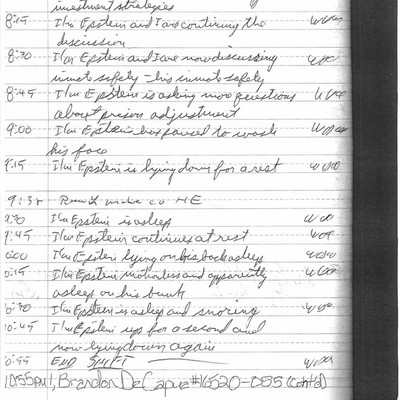 investment strategies
8:15 I/m Epstein and I are continuing the
discussion
8:30 I/m Epstein and I are now discussing
inmate safety - his inmate safety
8:45 I/m Epstein is asking more questions
about prison adjustment
9:00 I/m Epstein has paused to wash
his face
9:15 I/m Epstein is lying down for a rest
9:38
I/m Epstein is asleep
9:45 I/m Epstein continues at rest
0:00 I/m Epstein lying on his back asleep
0:15 I/m Epstein motionless and apparently
asleep on his bunk
0:30 I/m Epstein is asleep and snoring
0:45 I/m Epstein up for a second and
now lying down again
0:55 END SHIFT
10:55pm I, Brandon DeCapua #16520-055 (Cont'd)